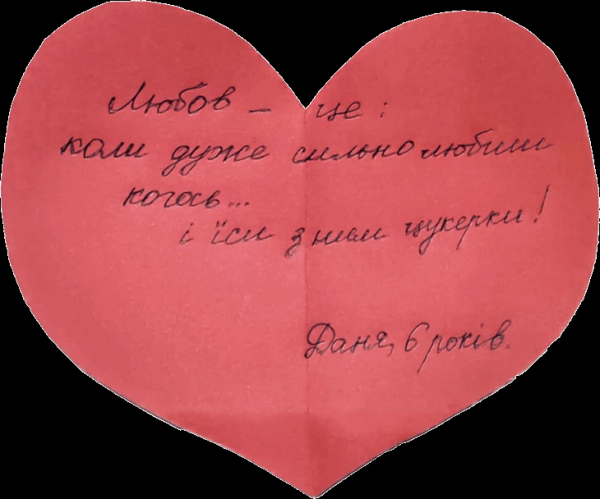 Любов – це:
коли дуже сильно любиш
когось...
і їси з ним цукерки!
Даня, 6 років.